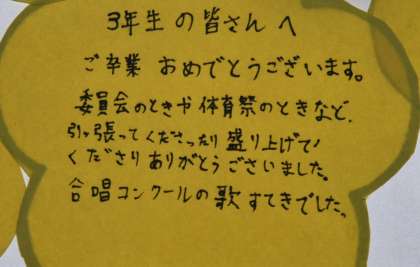 3年生の皆さんへ
ご卒業 おめでとうございます。
委員会のときや体育祭のときなど、
引っ張ってくださったり盛り上げて
くださりありがとうございました。
合唱コンクールの歌すてきでした。